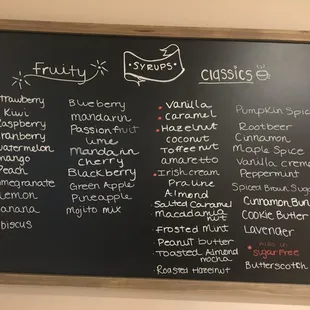 SYRUPS
Fruity
Strawberry
Kiwi
Raspberry
Cranberry
Watermelon
mango
Peach
Pomegranate
Lemon
Banana
Blueberry
mandarin
Passionfruit
Lime
Mandarin
Cherry
Blackberry
Green Apple
Pineapple
Mojito mix
Classics
Vanilla
Caramel
Hazelnut
coconut
Toffee nut
amaretto
Irish cream
Praline
Almond
Salted Caramel
Macadamia
nut
Frosted Mint
Peanut butter
Toasted Almond
mocha
Roasted Hazelnut
Pumpkin Spice
Rootbeer
Cinnamon
Maple Spice
Vanilla creme
Peppermint
Spiced Brown Sugar
Cinnamon Bun
Cookie Butter
Lavender
Also in
Sugar Free
Butterscotch